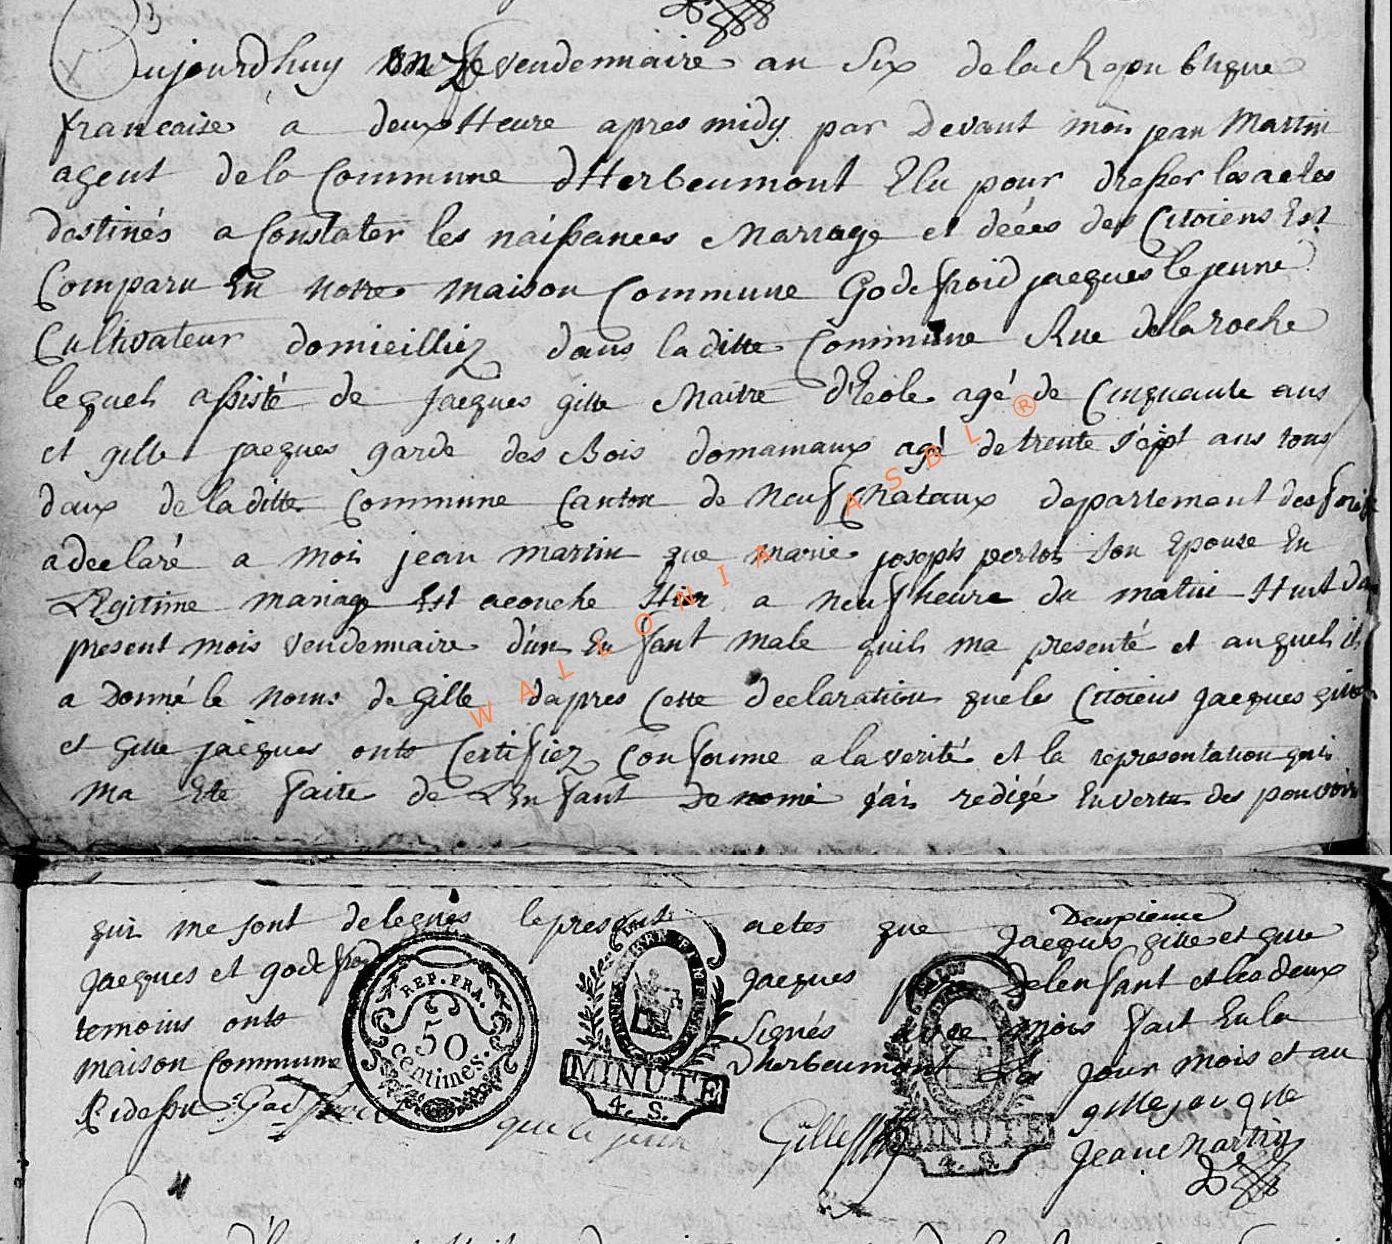 Aujourdhuy onze vendemiaire an Six de la Republique
francaise a deux Heure apres midy par Devant moi jean Martin
agent de la Commune dHerbeumont Elu pour dresser les actes
destinés a Constater les naissances Mariage et décés des Citoiens Est
Comparu En notre maison Commune Godefroid jacques le jeune
Cultivateur domicilliez dans la ditte Commune Rue de la roche
lequels assisté de jacques gille Maitre d'Ecole agé de Cinquante ans
et gille jacques garde des Bois domaniaux agé de trente s'ept ans tous
deux de la ditte Commune Canton de neufchataux departement des forets
a declaré a moi jean martin que marie joseph perlot son Epouse En
Legitime mariage Est acouche Hier a neuf heure du matin Huit du
present mois vendemiaire d'un Enfant male quils ma presenté et auquels il
a Donné le nom de Gille dapres Cette declaration que les Citoiens jacques gille
et gille jacques onts Certifiez Conforme a la verité et la representation quils
ma Ete faite de LEnfant denomé j'ais redigé En vertu des pouvoirs
qui me sont delegués le present actes que Deuxieme
Jacques gille et gille
jacques et godefroid jacques de lenfant et les deux
temoins onts Signés avec mois fait En la
maison Commune dherbeumont les jour mois et an
REP. FRA.
50
centimes.
MINUTE
4. S.
MINUTE
4. S.
Gille
gille jacque
Jean Martin
WALLONIA ASBL ®